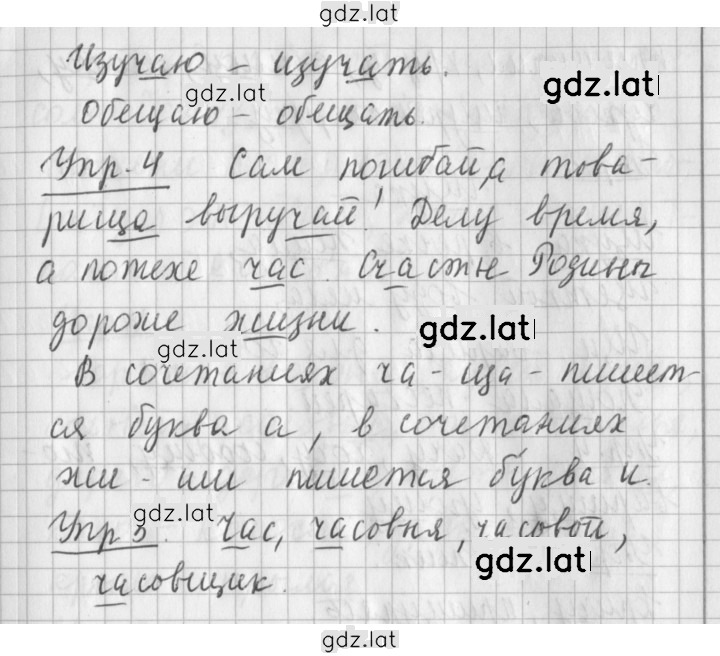 gdz.lat
Изучаю - изучать.
gdz.lat
gdz.lat
Обещаю - обещать.
Упр. 4 Сам погибай, а това-
рища выручай! Делу время,
а потехе час. Счастье Родины
дороже жизни.
gdz.lat
gdz.lat
В сочетаниях ча - ща - пишет-
ся буква а, в сочетаниях
жи - ши пишется буква и.
gdz.lat
Упр 5. Час, часовня, часовой,
gdz.lat
часовщик.
gdz.lat